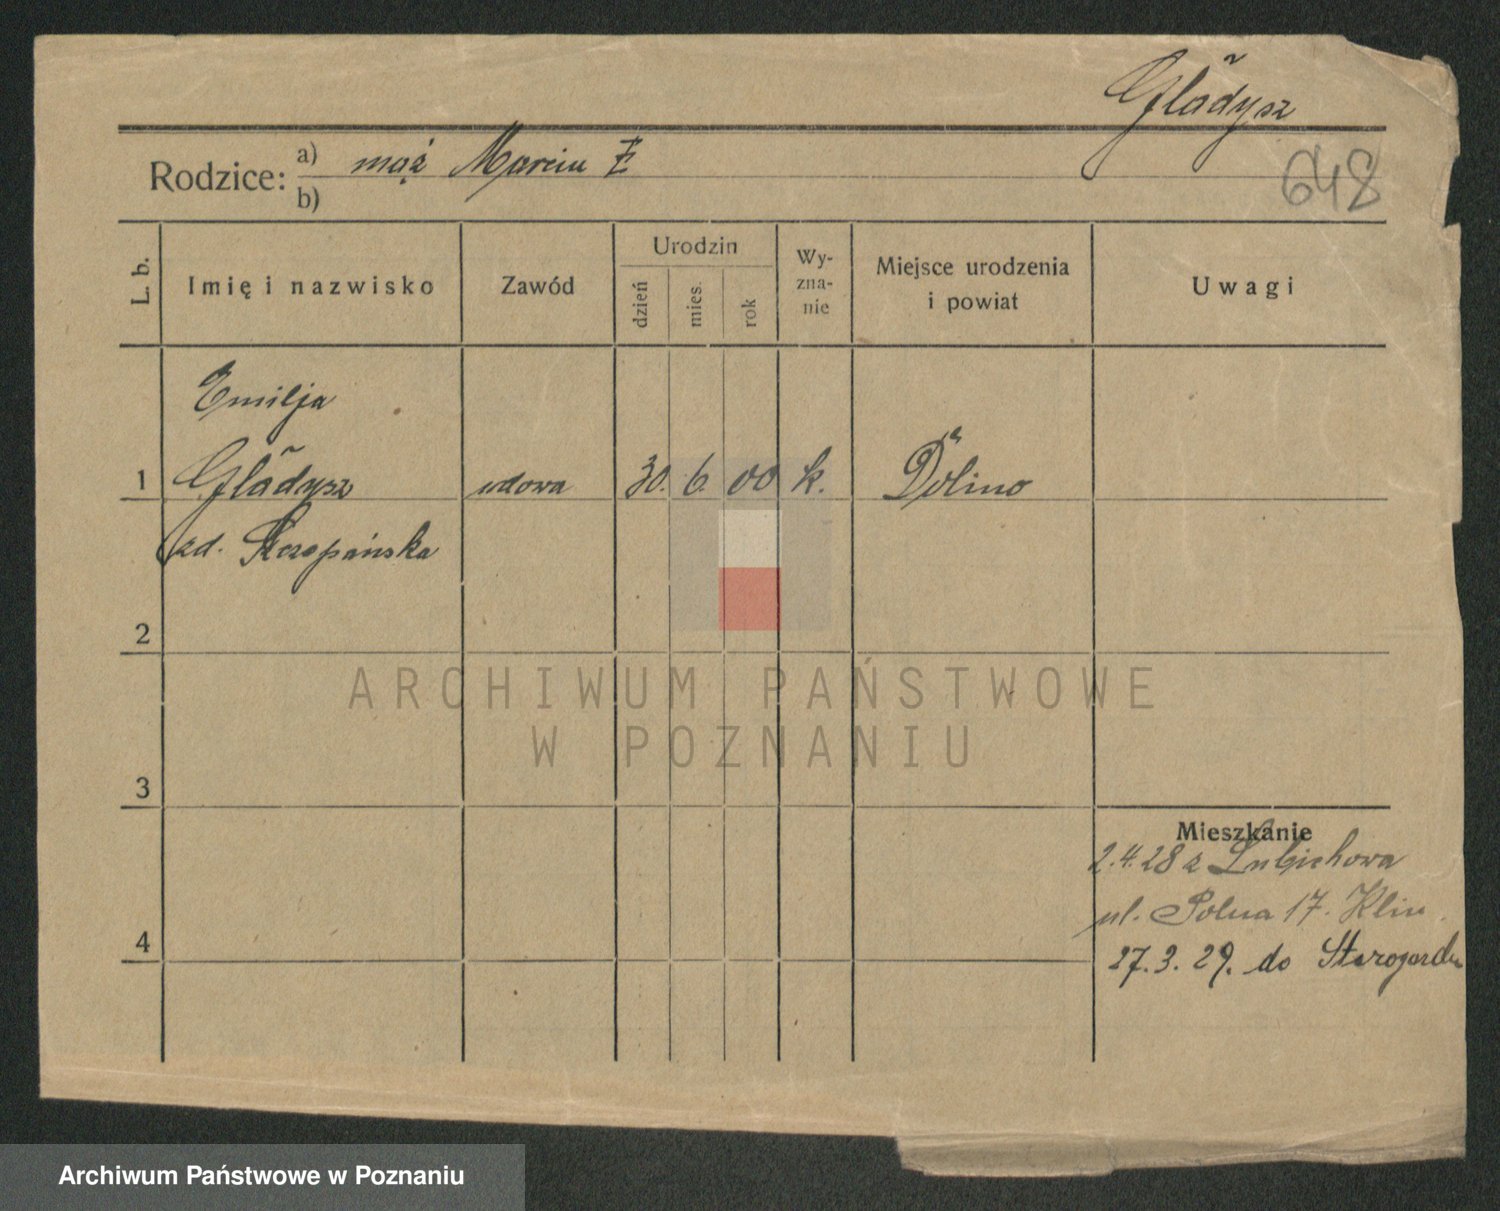 Gładysz
648
Rodzice: a) mąż Marcin
b)
L. b.
Imię i nazwisko
Zawód
Urodzin
dzień
mies.
rok
Wy-
zna-
nie
Miejsce urodzenia
i powiat
Uwagi
Emilja
1 Gładysz wdowa 30. 6. 00 k.
zd. Szczepańska
2
ARCHIWUM PAŃSTWOWE
W POZNANIU
3
Mieszkanie
2.4.28 z Lubichowa
ul. Polna 17.
4
27.3.29. do Starogardu
Archiwum Państwowe w Poznaniu